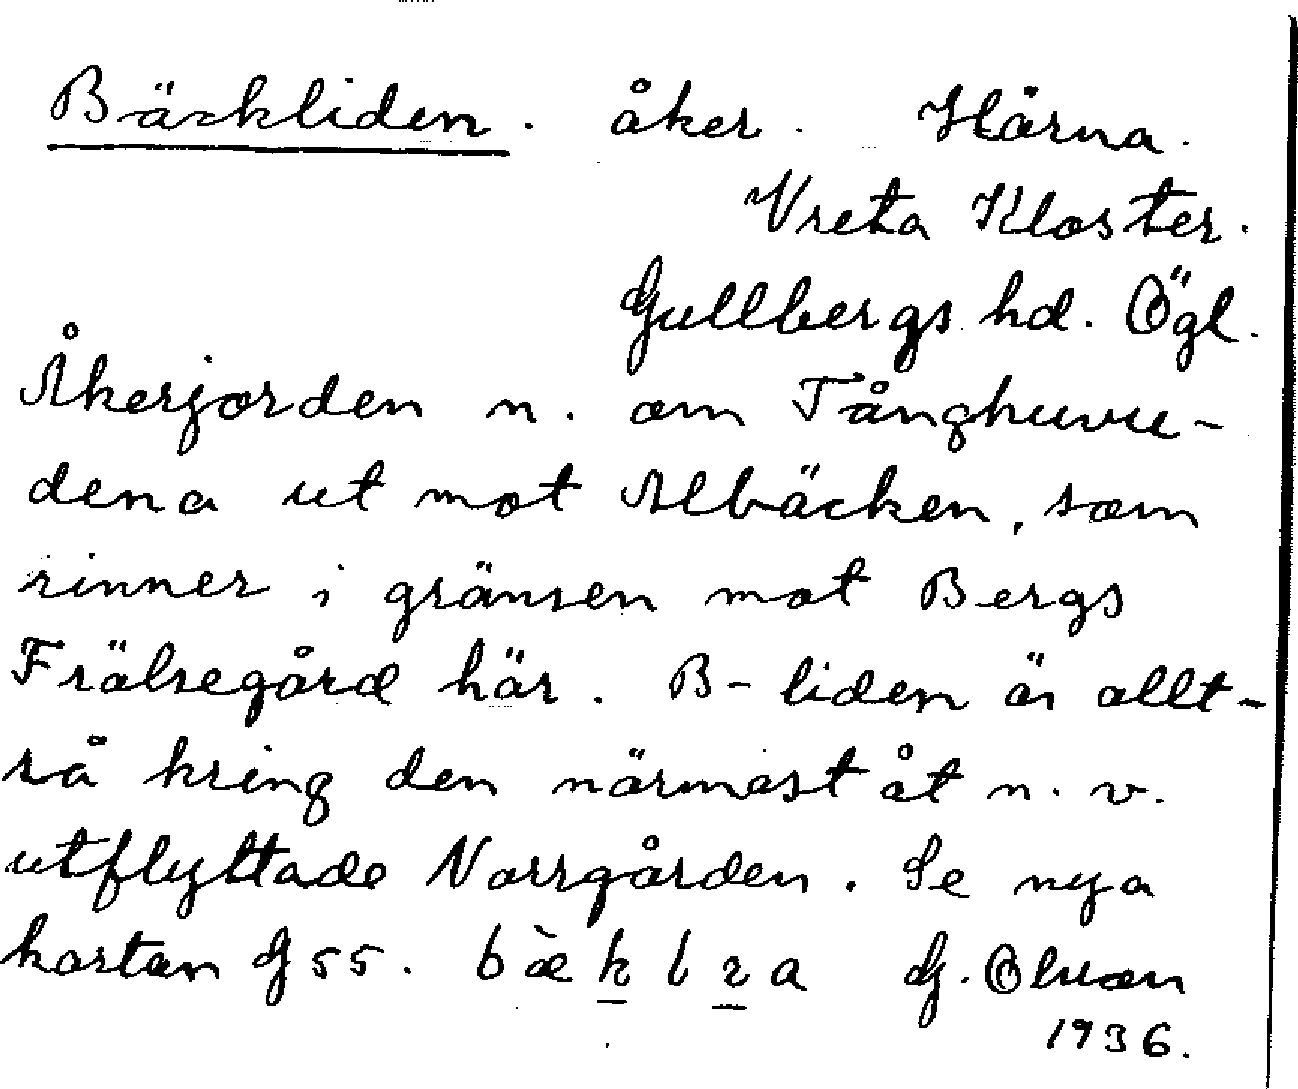 Bäckliden. åker. Hårna.
Vreta Kloster.
Gullbergs hd. Ögl.
Åkerjorden n. om Tånghuvu-
dena ut mot Albäcken, som
rinner i gränsen mot Bergs
Frälsegård här. B-liden är allt-
så kring den närmast åt n.v.
utflyttade Norrgården. Se nya
kartan G 55. G. Olsson
1936.